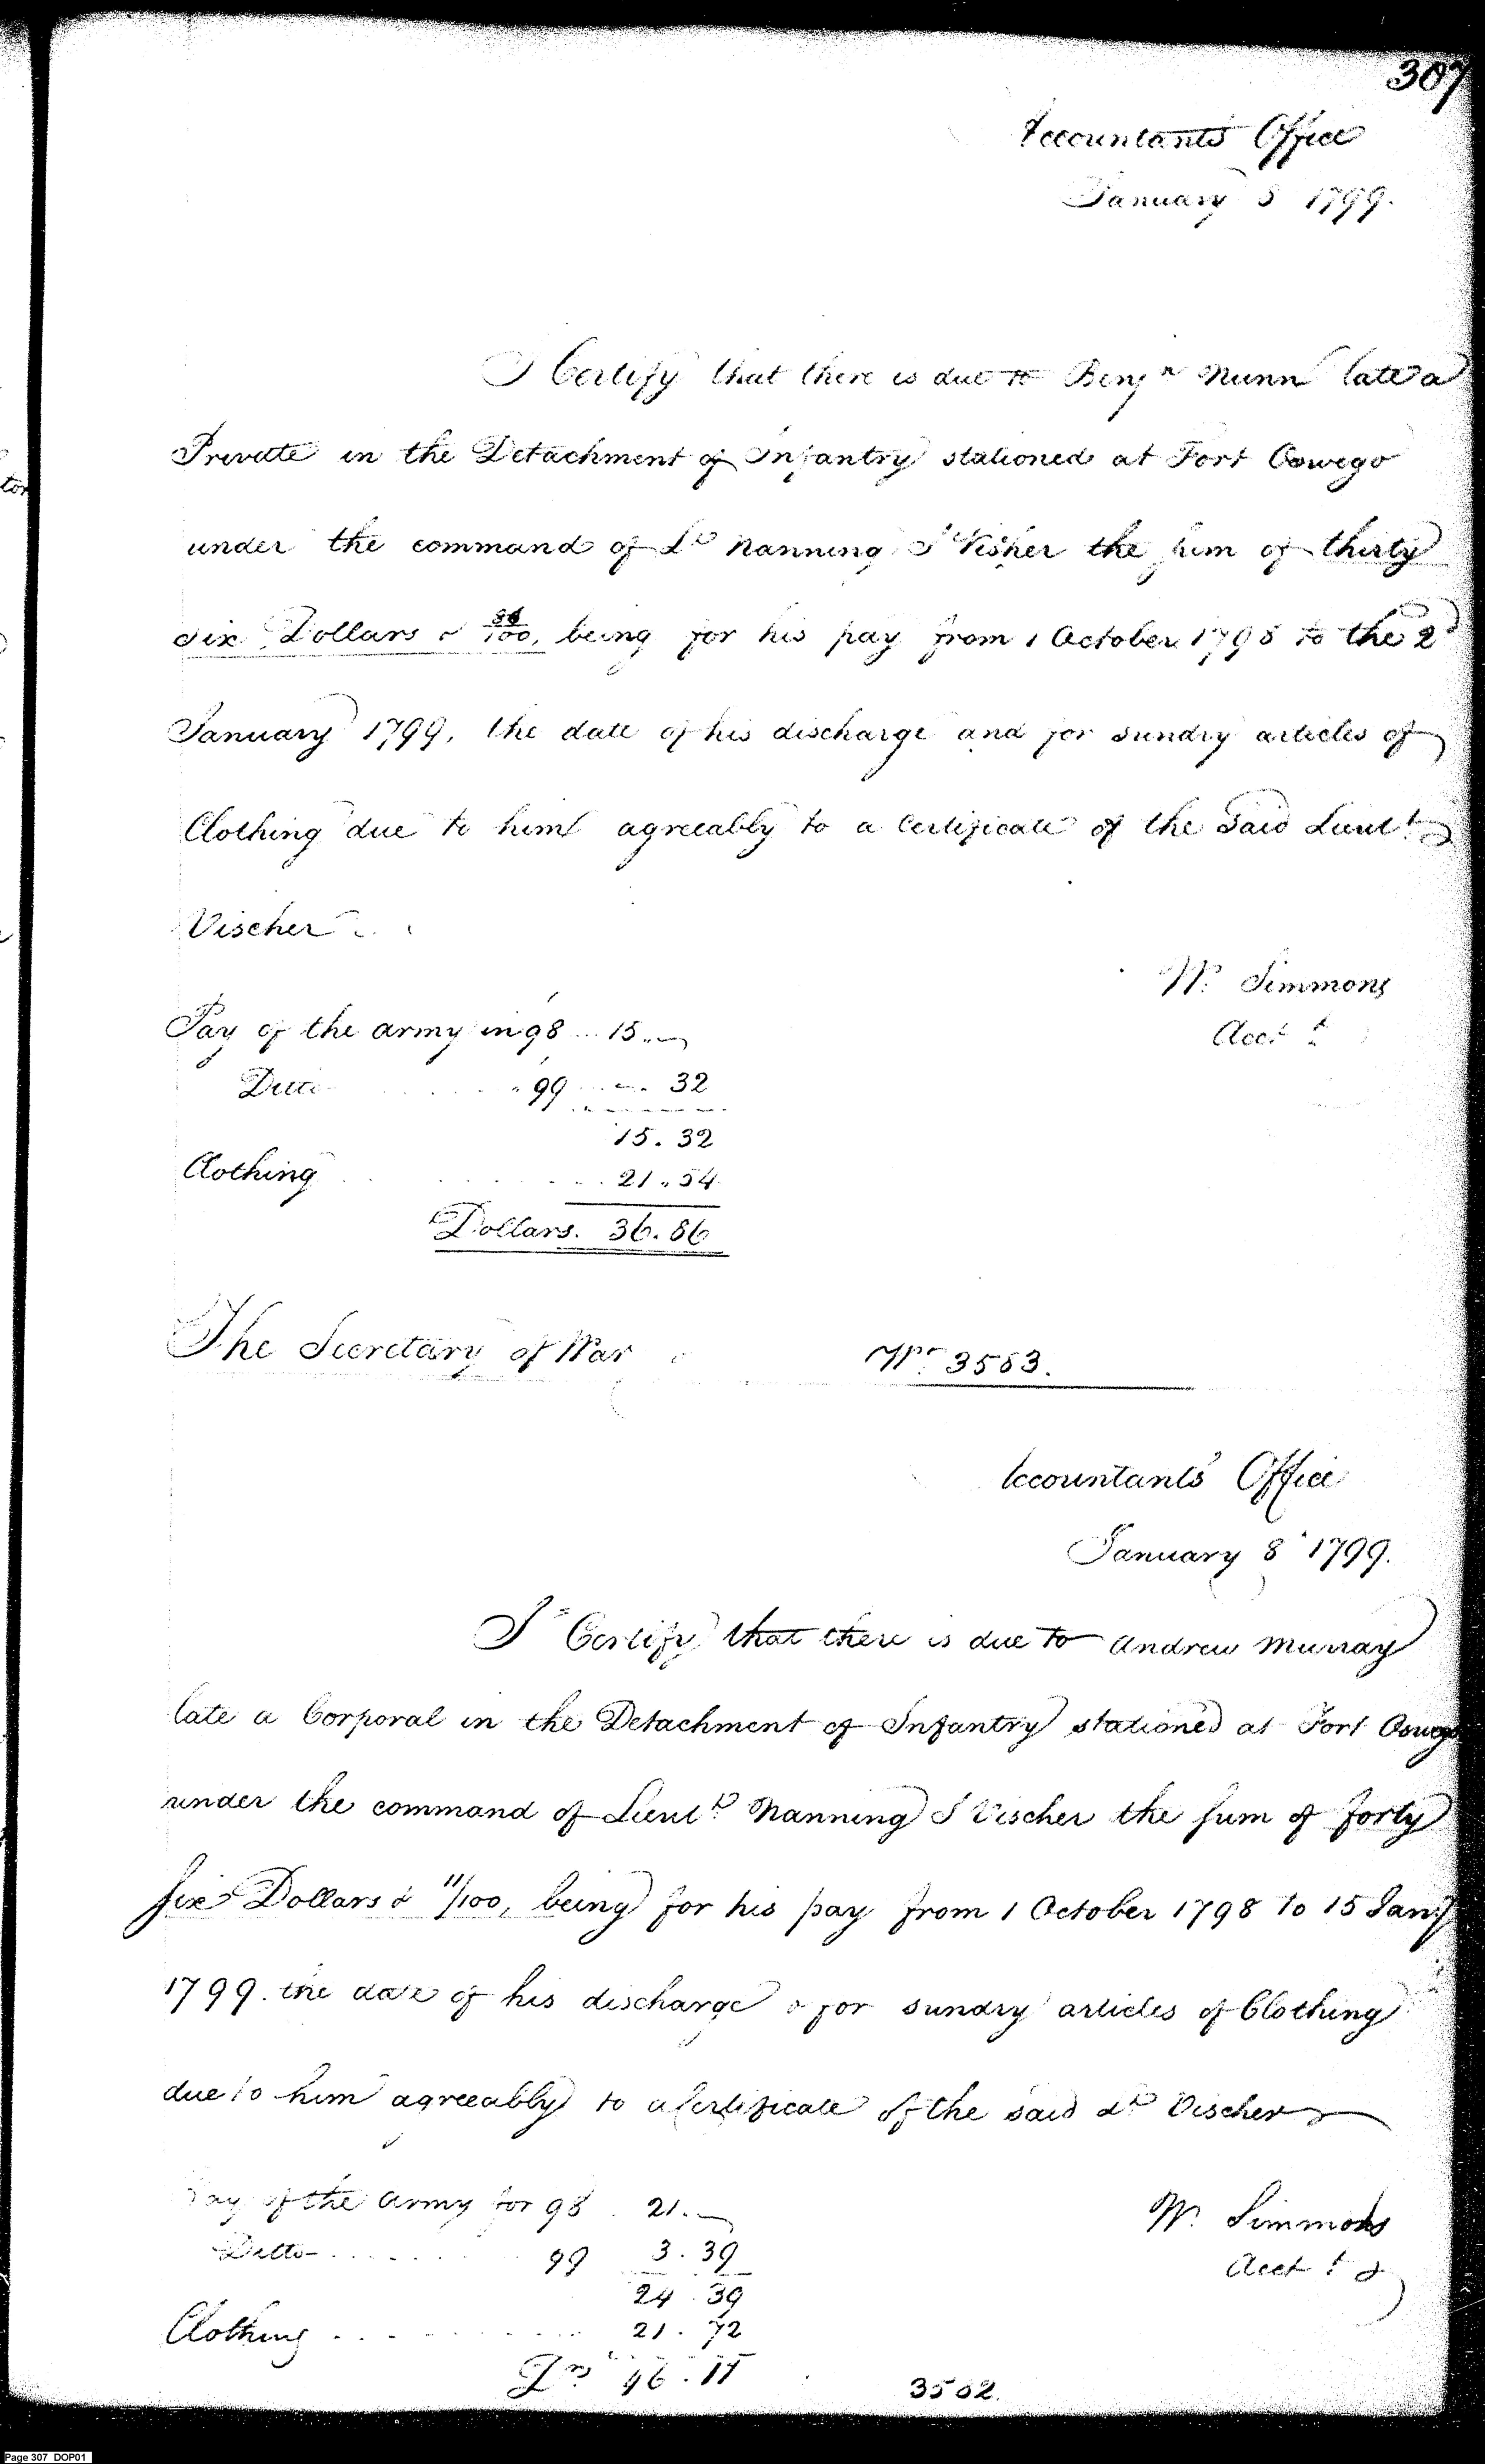 307
Accountants Office
January 8 1799.
I Certify that there is due to Benjn Nunn late a
Private in the Detachment of Infantry stationed at Fort Oswego
under the command of Lt Nanning J Visher the sum of thirty
six Dollars & 86/100, being for his pay from 1 October 1798 to the 2d
January 1799, the date of his discharge and for sundry articles of
Clothing due to him agreeably to a Certificate of the said Lieut
Vischer
W. Simmons
Acct
Pay of the army in 98 .... 15.
Ditto " 99 .... 32
15.32
Clothing 21.54
Dollars. 36.86
The Secretary of War
No 3583.
Accountants Office
January 8 1799.
I Certify that there is due to Andrew Murray
late a Corporal in the Detachment of Infantry stationed at Fort Oswego
under the command of Lieutt Nanning J Vischer the sum of forty
six Dollars & 11/100, being for his pay from 1 October 1798 to 15 Jany
1799. the date of his discharge & for sundry articles of Clothing
due to him agreeably to a Certificate of the said Lt Vischer
Pay of the Army for 98 21.
W. Simmons
Ditto 99 3.39
Acct
24.39
Clothing 21.72
Drs 46.11
3582.
Page 307 DOP01